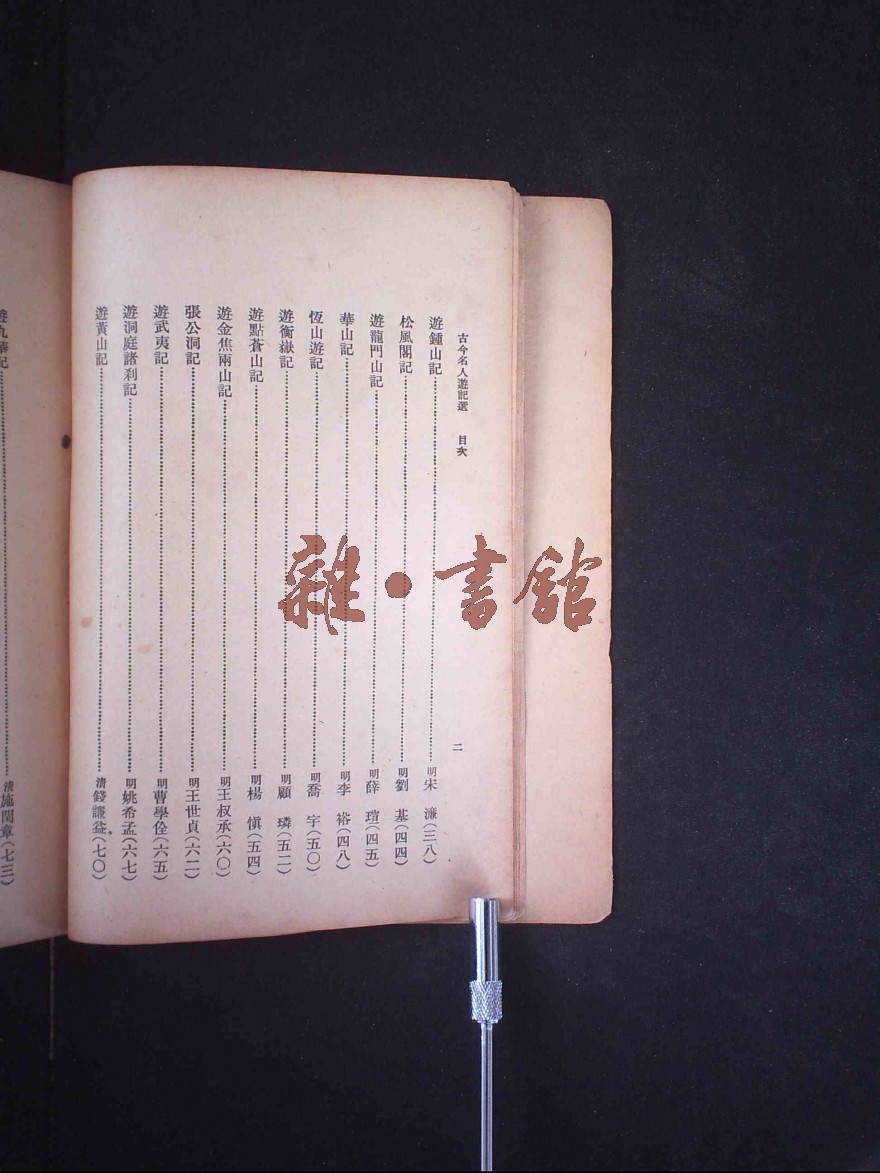 古今名人遊記選 目次 二
遊鍾山記 明宋濂(三八)
松風閣記 明劉基(四四)
遊龍門山記 明薛瑄(四五)
華山記 明李裕(四八)
恆山遊記 明喬宇(五〇)
遊衡嶽記 明顧璘(五二)
遊點蒼山記 明楊愼(五四)
遊金焦兩山記 明王叔承(六〇)
張公洞記 明王世貞(六二)
遊武夷記 明曹學佺(六五)
遊洞庭諸刹記 明姚希孟(六七)
遊黃山記 清錢謙益(七〇)
遊九華記 清施閏章(七三)
雜·書館